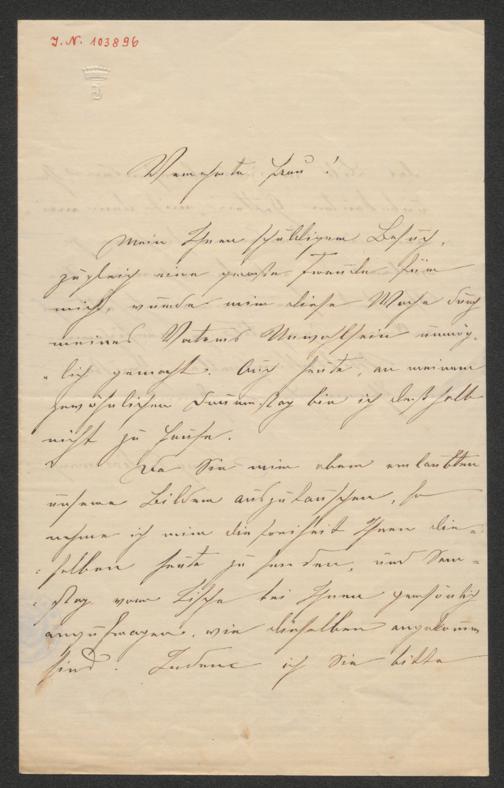 I. N. 103896
Verehrte Frau!
Mein Ihnen schuldigem Besuch,
zugleich eine große Freude für
mich, wurde mir diese Woche durch
meines Vaters Unwohlsein unmög-
lich gemacht. Auch heute, an meinem
gewöhnlichen Damenstag bin ich deshalb
nicht zu Hause.
Da Sie mir aber erlaubten
unsere Bilder auszutauschen, so
nehme ich mir die Freiheit Ihnen die-
selben heute zu senden, und Sam-
stag vor Tische bei Ihnen persönlich
anzufragen, wie dieselben angekommen
sind. Indem ich Sie bitte